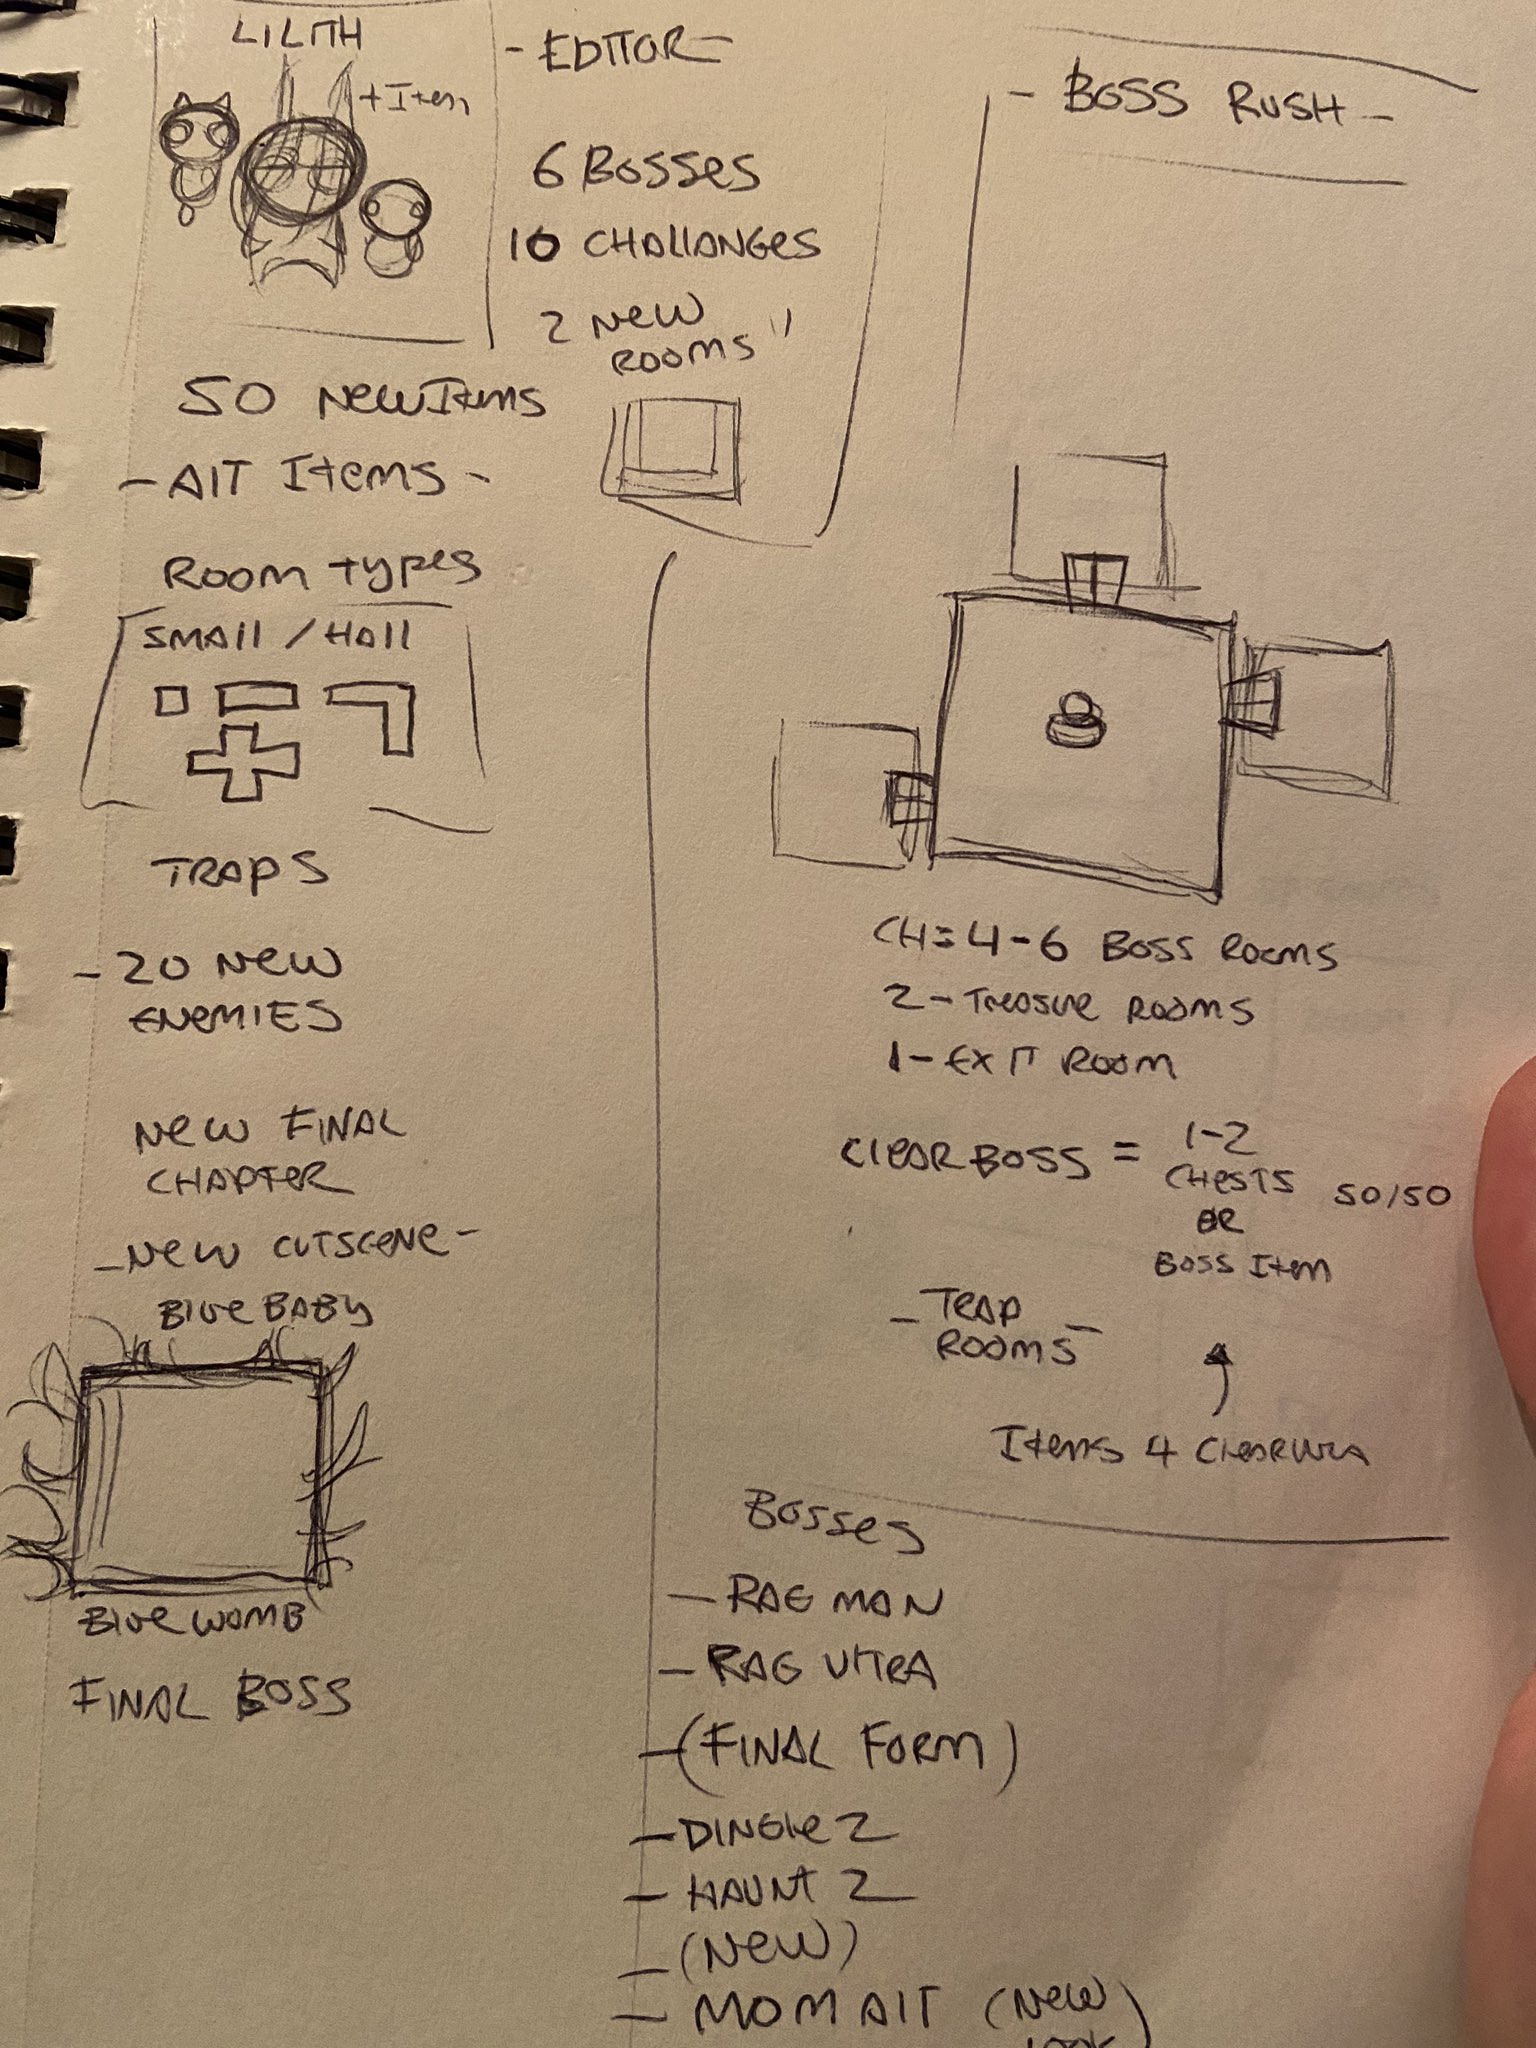 LILITH
+Item
50 New Items
- Alt Items -
Room types
SMAll / HAll
TRAPS
- 20 New
ENEMIES
New FINAL
CHAPTER
- New CUTSCENE -
Blue BABY
Blue WOMB
FINAL BOSS
- EDITOR -
6 Bosses
10 CHAllANGES
2 New
ROOMS
- BOSS RUSH -
CH= 4-6 BOSS Rooms
2 - Treasure Rooms
1 - EXIT ROOM
Clear BOSS = 1-2
CHESTS 50/50
OR
Boss Item
- TRAP
ROOMS -
Items 4
Bosses
- RAG MAN
- RAG UlTRA
- (FINAL FORM)
- DINGle 2
- HAUNT 2
- (New)
- MOM AlT (New
look)